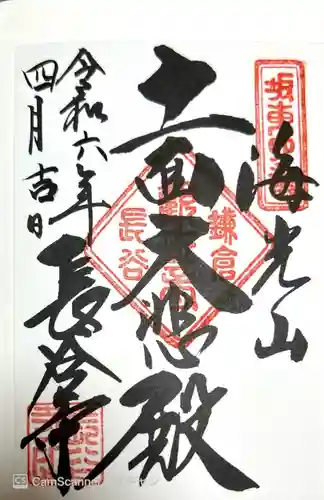 海光山
十一面大悲殿
長谷寺
令和六年
四月吉日
鎌倉
長谷
CamScanner